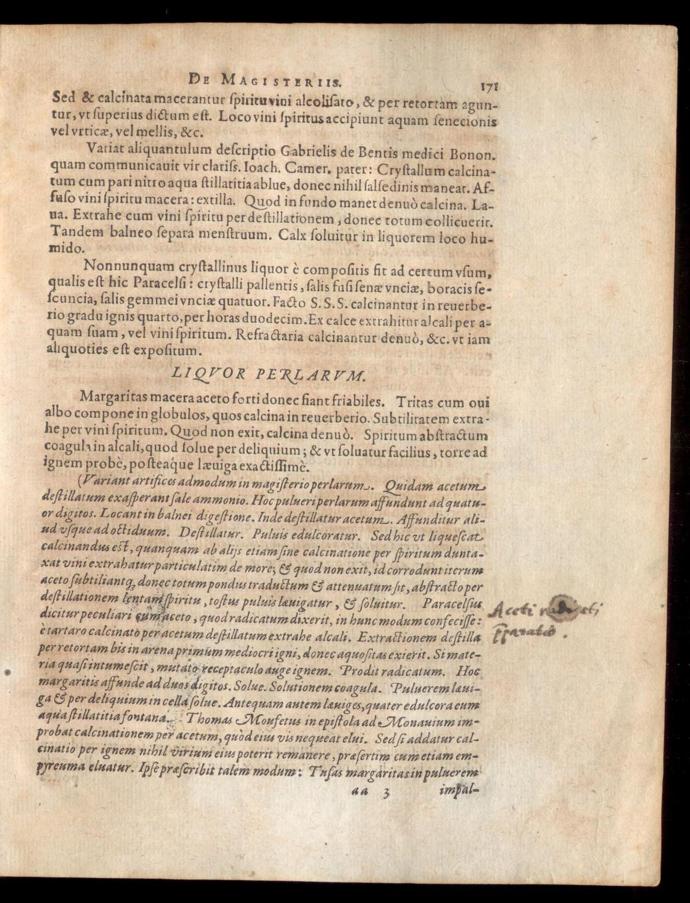 DE MAGISTERIIS. 171
Sed & calcinata macerantur ſpiritu vini alcoliſato, & per retortam agun-
tur, vt ſuperius dictum eſt. Loco vini ſpiritus accipiunt aquam ſenecionis
vel vrticæ, vel mellis, &c.
Variat aliquantulum deſcriptio Gabrielis de Bentis medici Bonon.
quam communicauit vir clariſs. Ioach. Camer. pater: Cryſtallum calcina-
tum cum pari nitro aqua ſtillatitia ablue, donec nihil ſalſedinis maneat. Af-
fuſo vini ſpiritu macera: extilla. Quod in fundo manet denuò calcina. La-
ua. Extrahe cum vini ſpiritu per deſtillationem, donec totum collicuerit.
Tandem balneo ſepara menſtruum. Calx ſoluitur in liquorem loco hu-
mido.
Nonnunquam cryſtallinus liquor è compoſitis fit ad certum vſum,
qualis eſt hic Paracelſi: cryſtalli pallentis, ſalis fuſi ſenæ vnciæ, boracis ſe-
ſcuncia, ſalis gemmei vnciæ quatuor. Facto S. S. S. calcinantur in reuerbe-
rio gradu ignis quarto, per horas duodecim. Ex calce extrahitur alcali per a-
quam ſuam, vel vini ſpiritum. Refractaria calcinantur denuò, &c. vt iam
aliquoties eſt expoſitum.
LIQVOR PERLARVM.
Margaritas macera aceto forti donec fiant friabiles. Tritas cum oui
albo compone in globulos, quos calcina in reuerberio. Subtilitatem extra-
he per vini ſpiritum. Quod non exit, calcina denuò. Spiritum abſtractum
coagula in alcali, quod ſolue per deliquium; & vt ſoluatur facilius, torre ad
ignem probè, poſteaque læuiga exactiſſimè.
(Variant artifices admodum in magiſterio perlarum. Quidam acetum
deſtillatum exaſperant ſale ammonio. Hoc pulueri perlarum affundunt ad quatu-
or digitos. Locant in balnei digeſtione. Inde deſtillatur acetum. Affunditur ali-
ud vſque ad octiduum. Deſtillatur. Puluis edulcoratur. Sed hic vt liqueſcat
calcinandus eſt, quanquam ab alijs etiam ſine calcinatione per ſpiritum dunta-
xat vini extrahatur particulatim de more; & quod non exit, id corrodunt iterum
aceto ſubtiliantq́, donec totum pondus traductum & attenuatum ſit, abſtracto per
deſtillationem lentam ſpiritu, toſtus puluis læuigatur, & ſoluitur. Paracelſus
dicitur peculiari cum aceto, quod radicatum dixerit, in hunc modum confeciſſe:
è tartaro calcinato per acetum deſtillatum extrahe alcali. Extractionem deſtilla
per retortam bis in arena primùm mediocri igni, donec aquoſitas exierit. Si mate-
ria quaſi intumeſcit, mutato receptaculo auge ignem. Prodit radicatum. Hoc
margaritis affunde ad duos digitos. Solue. Solutionem coagula. Puluerem læui-
ga & per deliquium in cella ſolue. Antequam autem læuiges, quater edulcora eum
aqua ſtillatitia fontana. Thomas Moufetus in epiſtola ad Monauium im-
probat calcinationem per acetum, quòd eius vis nequeat elui. Sed ſi addatur cal-
cinatio per ignem nihil virium eius poterit remanere, præſertim cum etiam em-
pyreuma eluatur. Ipſe præſcribit talem modum: Tuſas margaritas in puluerem
aa 3 impal-
Aceti